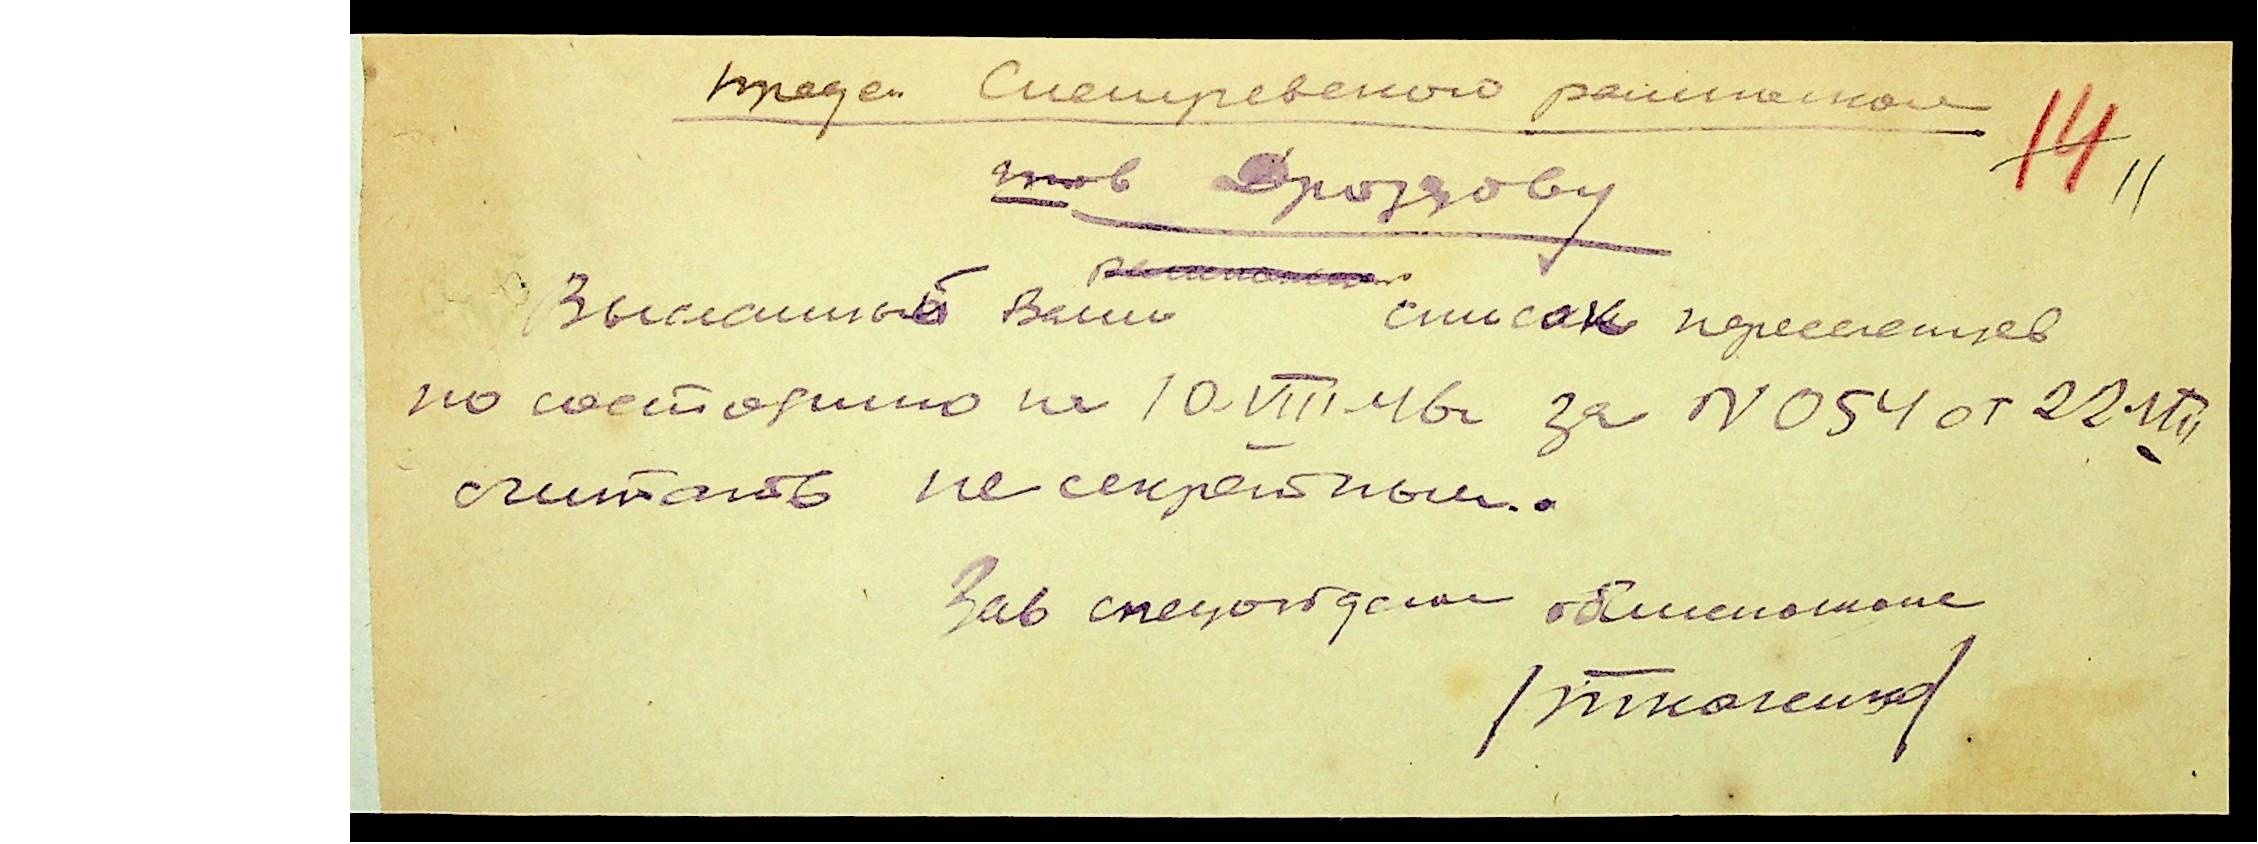 Предс. Снегиревского райисполкома
14 11
тов Дроздову
Высланный Вами список переселенцев
по состоянию на 10.VIII-46г за N 054 от 22.VIII
считать не секретным.
Зав спецотделом облисполкома
/Ткаченко/